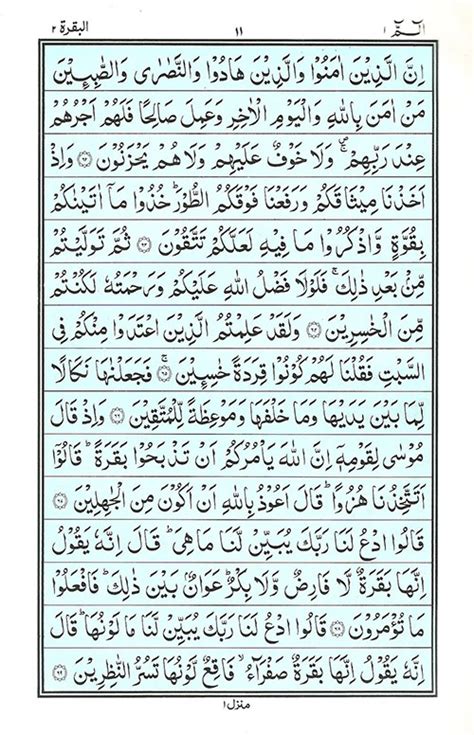 الٓمّٓ ١ ١١ البقرة ٢
اِنَّ الَّذِيْنَ اٰمَنُوْا وَالَّذِيْنَ هَادُوْا وَالنَّصٰرٰى وَالصّٰبِـِٕيْنَ
مَنْ اٰمَنَ بِاللّٰهِ وَالْيَوْمِ الْاٰخِرِ وَعَمِلَ صَالِحًا فَلَهُمْ اَجْرُهُمْ
عِنْدَ رَبِّهِمْ ۚ وَلَا خَوْفٌ عَلَيْهِمْ وَلَا هُمْ يَحْزَنُوْنَ ﴿٦٢﴾ وَاِذْ
اَخَذْنَا مِيْثَاقَكُمْ وَرَفَعْنَا فَوْقَكُمُ الطُّوْرَ ؕ خُذُوْا مَاۤ اٰتَيْنٰكُمْ
بِقُوَّةٍ وَّاذْكُرُوْا مَا فِيْهِ لَعَلَّكُمْ تَتَّقُوْنَ ﴿٦٣﴾ ثُمَّ تَوَلَّيْتُمْ
مِّنْۢ بَعْدِ ذٰلِكَ ۚ فَلَوْلَا فَضْلُ اللّٰهِ عَلَيْكُمْ وَرَحْمَتُهٗ لَكُنْتُمْ
مِّنَ الْخٰسِرِيْنَ ﴿٦٤﴾ وَلَقَدْ عَلِمْتُمُ الَّذِيْنَ اعْتَدَوْا مِنْكُمْ فِى
السَّبْتِ فَقُلْنَا لَهُمْ كُوْنُوْا قِرَدَةً خٰسِـِٕيْنَ ۚ ﴿٦٥﴾ فَجَعَلْنٰهَا نَكَالًا
لِّمَا بَيْنَ يَدَيْهَا وَمَا خَلْفَهَا وَمَوْعِظَةً لِّلْمُتَّقِيْنَ ﴿٦٦﴾ وَاِذْ قَالَ
مُوْسٰى لِقَوْمِهٖۤ اِنَّ اللّٰهَ يَاْمُرُكُمْ اَنْ تَذْبَحُوْا بَقَرَةً ؕ قَالُوْۤا
اَتَتَّخِذُنَا هُزُوًا ؕ قَالَ اَعُوْذُ بِاللّٰهِ اَنْ اَكُوْنَ مِنَ الْجٰهِلِيْنَ ﴿٦٧﴾
قَالُوا ادْعُ لَنَا رَبَّكَ يُبَيِّنْ لَّنَا مَا هِىَ ؕ قَالَ اِنَّهٗ يَقُوْلُ
اِنَّهَا بَقَرَةٌ لَّا فَارِضٌ وَّلَا بِكْرٌ ؕ عَوَانٌۢ بَيْنَ ذٰلِكَ ؕ فَافْعَلُوْا
مَا تُؤْمَرُوْنَ ﴿٦٨﴾ قَالُوا ادْعُ لَنَا رَبَّكَ يُبَيِّنْ لَّنَا مَا لَوْنُهَا ؕ قَالَ
اِنَّهٗ يَقُوْلُ اِنَّهَا بَقَرَةٌ صَفْرَآءُ ۙ فَاقِعٌ لَّوْنُهَا تَسُرُّ النّٰظِرِيْنَ ﴿٦٩﴾
منزل ١